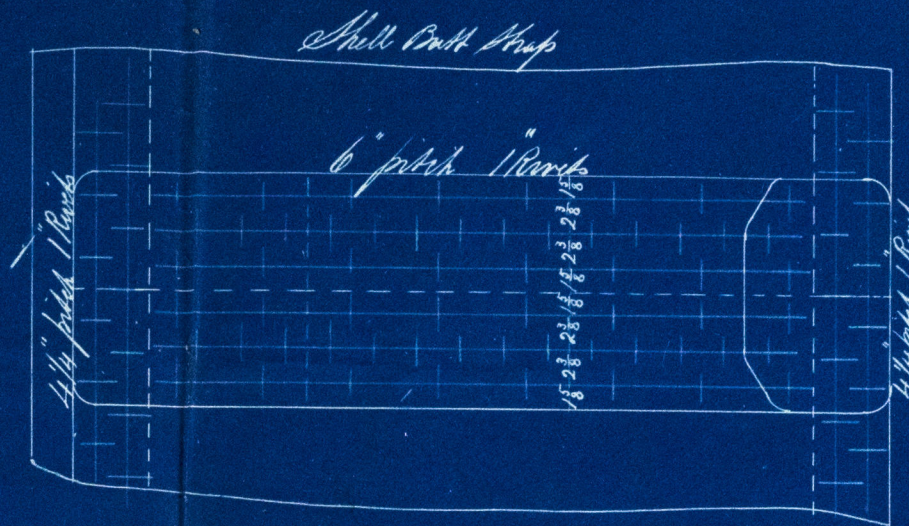 Shell Butt Strap
6" pitch 1" Rivets
4 1/4" pitch 1" Rivets
1 5/8 2 3/8 2 3/8 1 5/8 1 5/8 2 3/8 2 3/8 1 5/8
4 1/4" pitch 1" Rivets